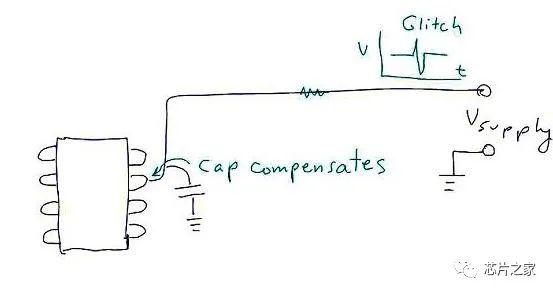 Glitch
V
t
Vsupply
cap compensates
芯片之家